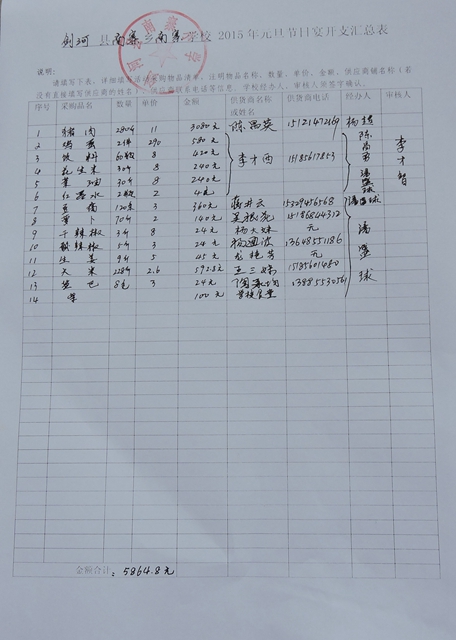 剑河 县南寨乡南寨学校 2015 年元旦节日宴开支汇总表
说明:
请填写下表，详细填写活动采购物品清单，注明物品名称、数量、单价、金额、供应商铺名称（若
没有直接填写供应商的姓名）、供应商联系电话等信息，学校经办人、审核人需签字确认。
序号 采购品名 数量 单价 金额 供货商名称或姓名 供货商电话 经办人 审核人
1 猪肉 280斤 11 3080元 陈昌英 15121472269 杨超
2 鸡蛋 2件 290 580元
3 饮料 420元 李才西 15185617853 李才智
4 花生米 30斤 8 240元
5 菜油 30斤 8 240元
6 2 4元
7 豆腐 120 3 360元 15329456568
8 萝卜 70斤 2 140元 15186844312
9 干辣椒 3斤 8 24元 杨大妹 元
10 5斤 3 24元 杨通波 13648551186
11 生姜 9斤 5 45元 元
12 大米 228斤 2.6 592.8元 15185601480
13 8包 3 24元 13885530561
14 煤 100元 学校食堂
金额合计：5864.8元